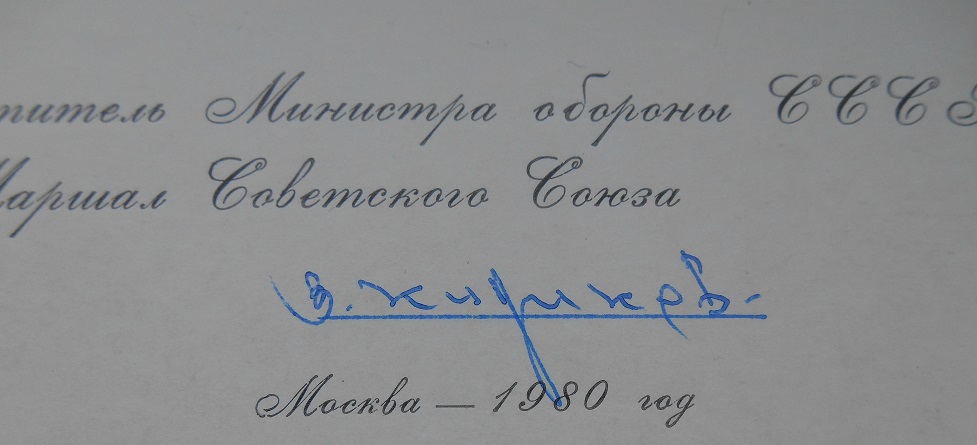 титель Министра обороны СССР
Маршал Советского Союза
Москва — 1980 год